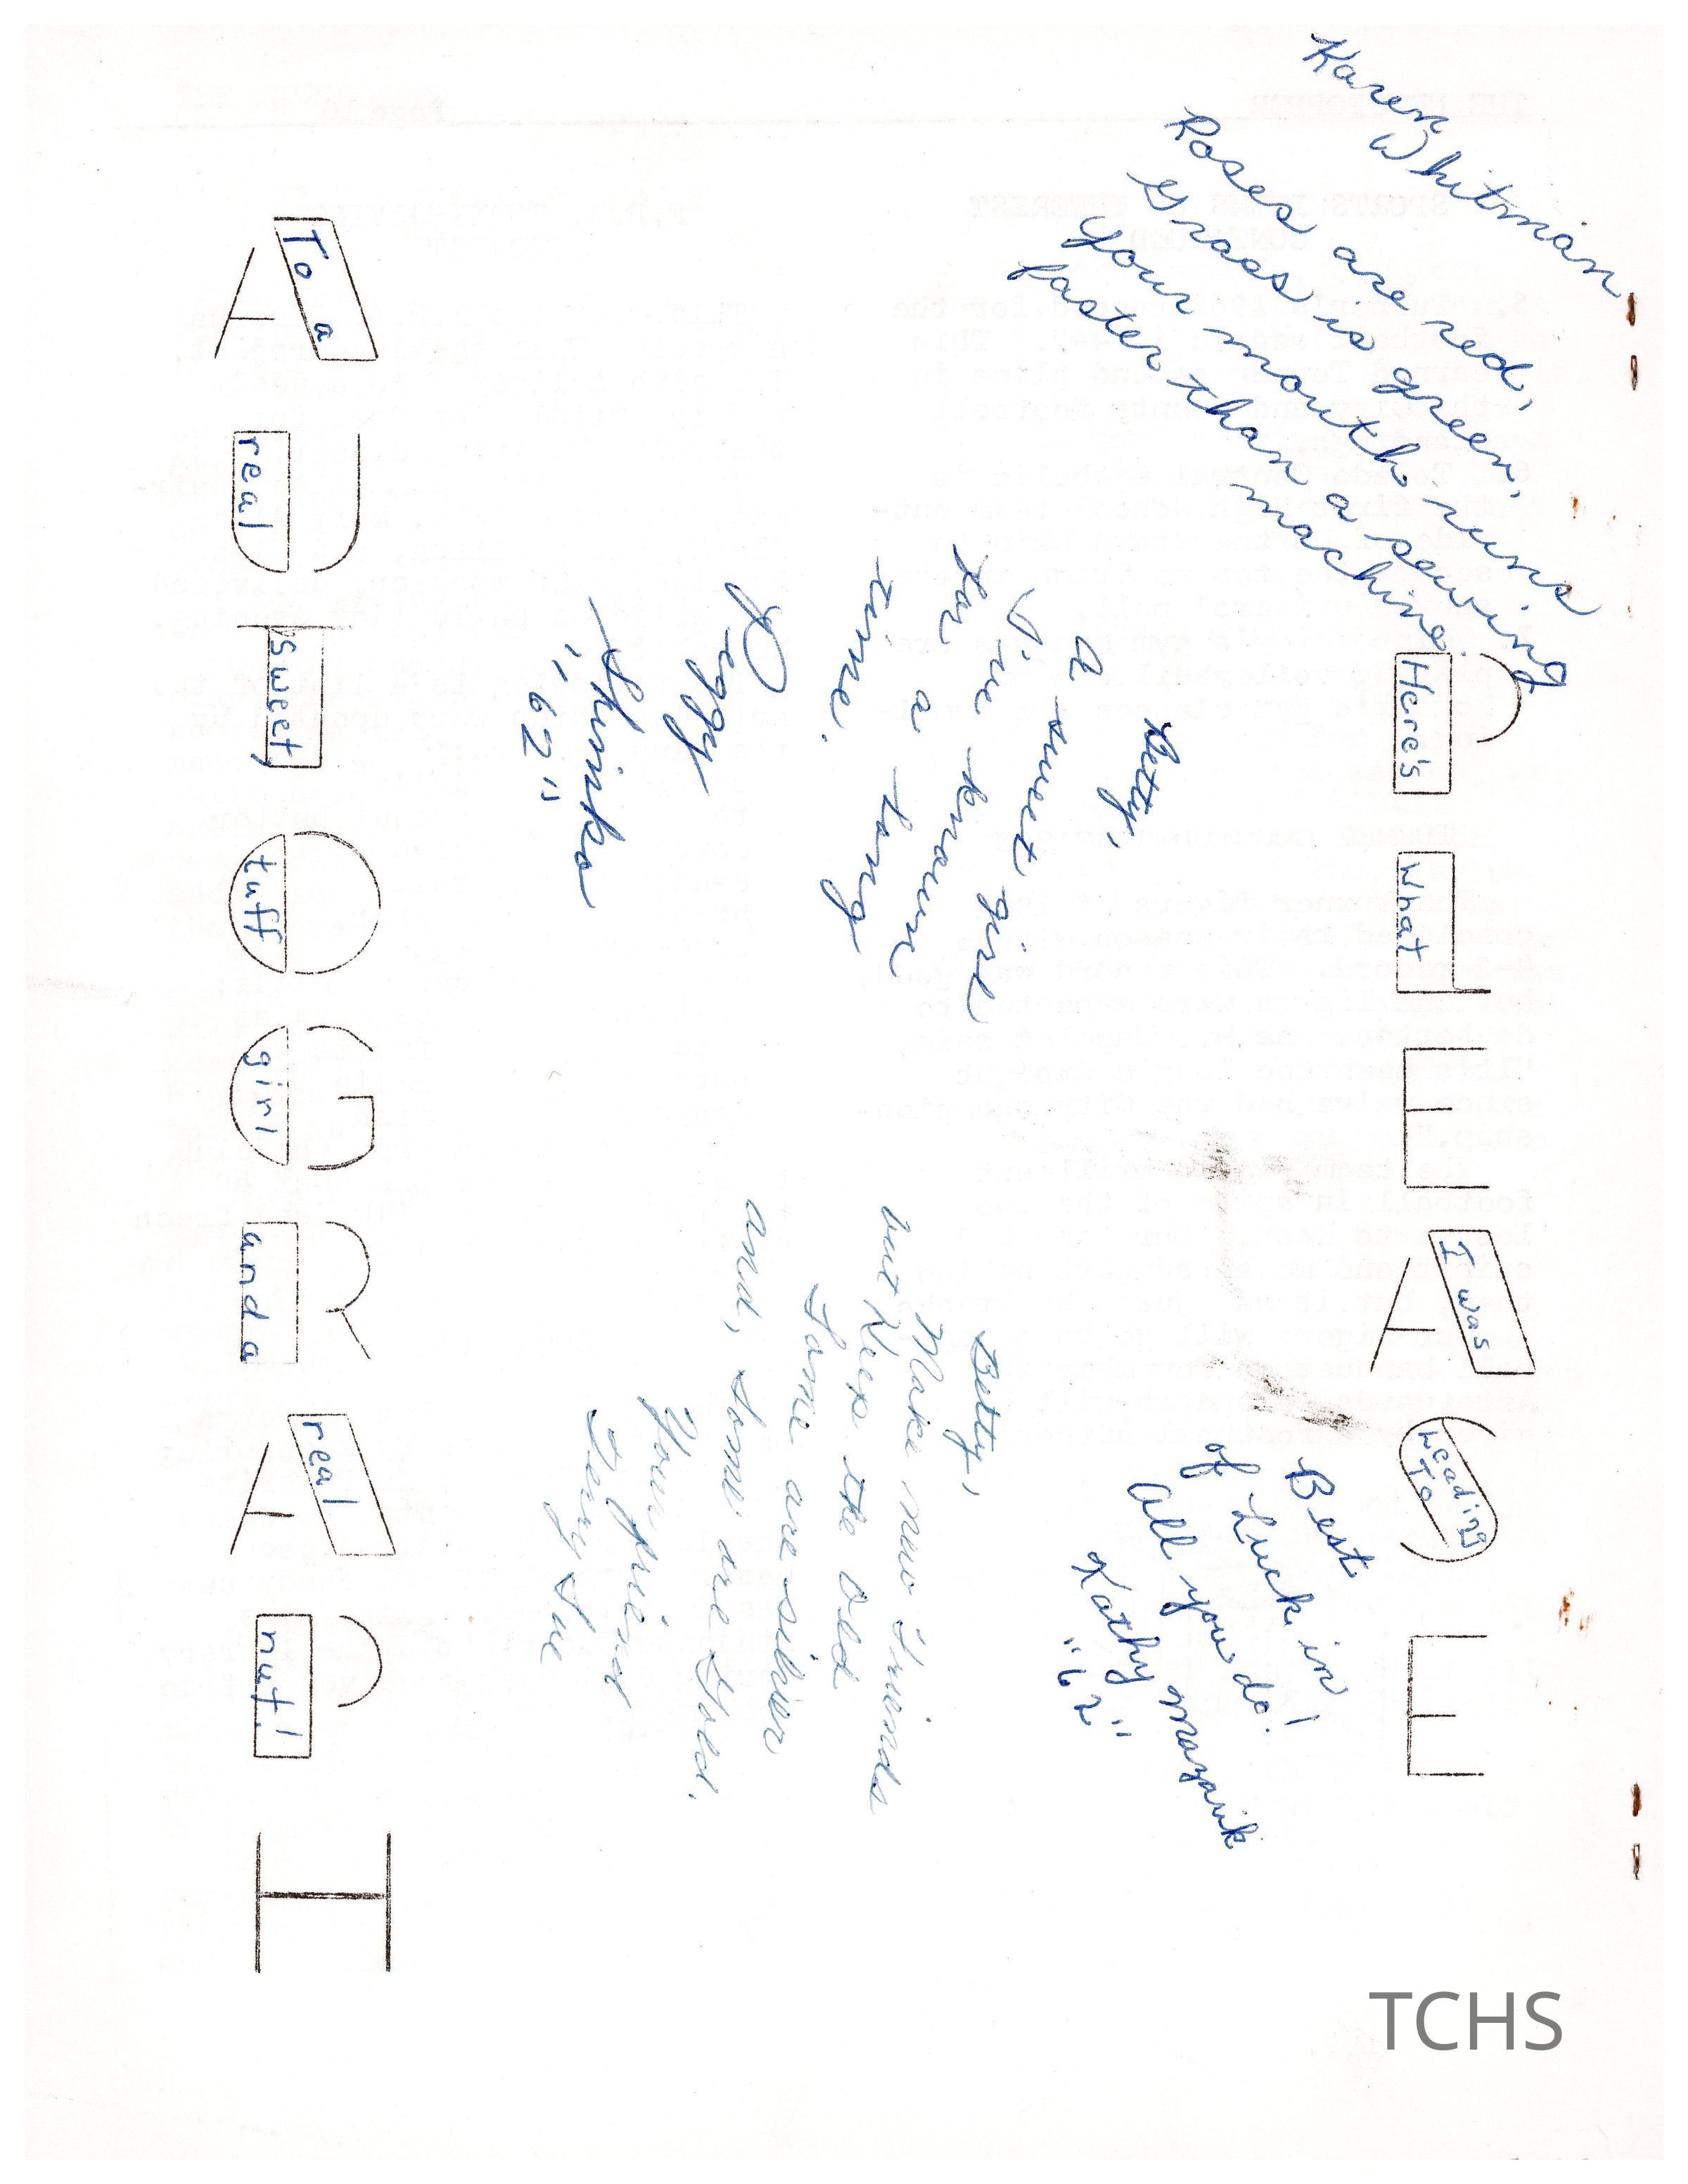 PLEASE
Here's
What
I was
leading
To
AUTOGRAPH
To a
real
sweet,
tuff
girl
and a
real
nut!
Karen
Whitman
Roses are red,
Grass is green,
Your mouth runs
faster than a sewing
machine.
Betty,
A sweet girl
I've known
for a long
time.
Peggy
"62"
Best
of Luck in
All you do!
Kathy Mazanik
"62"
Betty,
Make new friends
but Keep the old
Some are silver
and, some are Gold.
Your friend
Terry Sue
TCHS